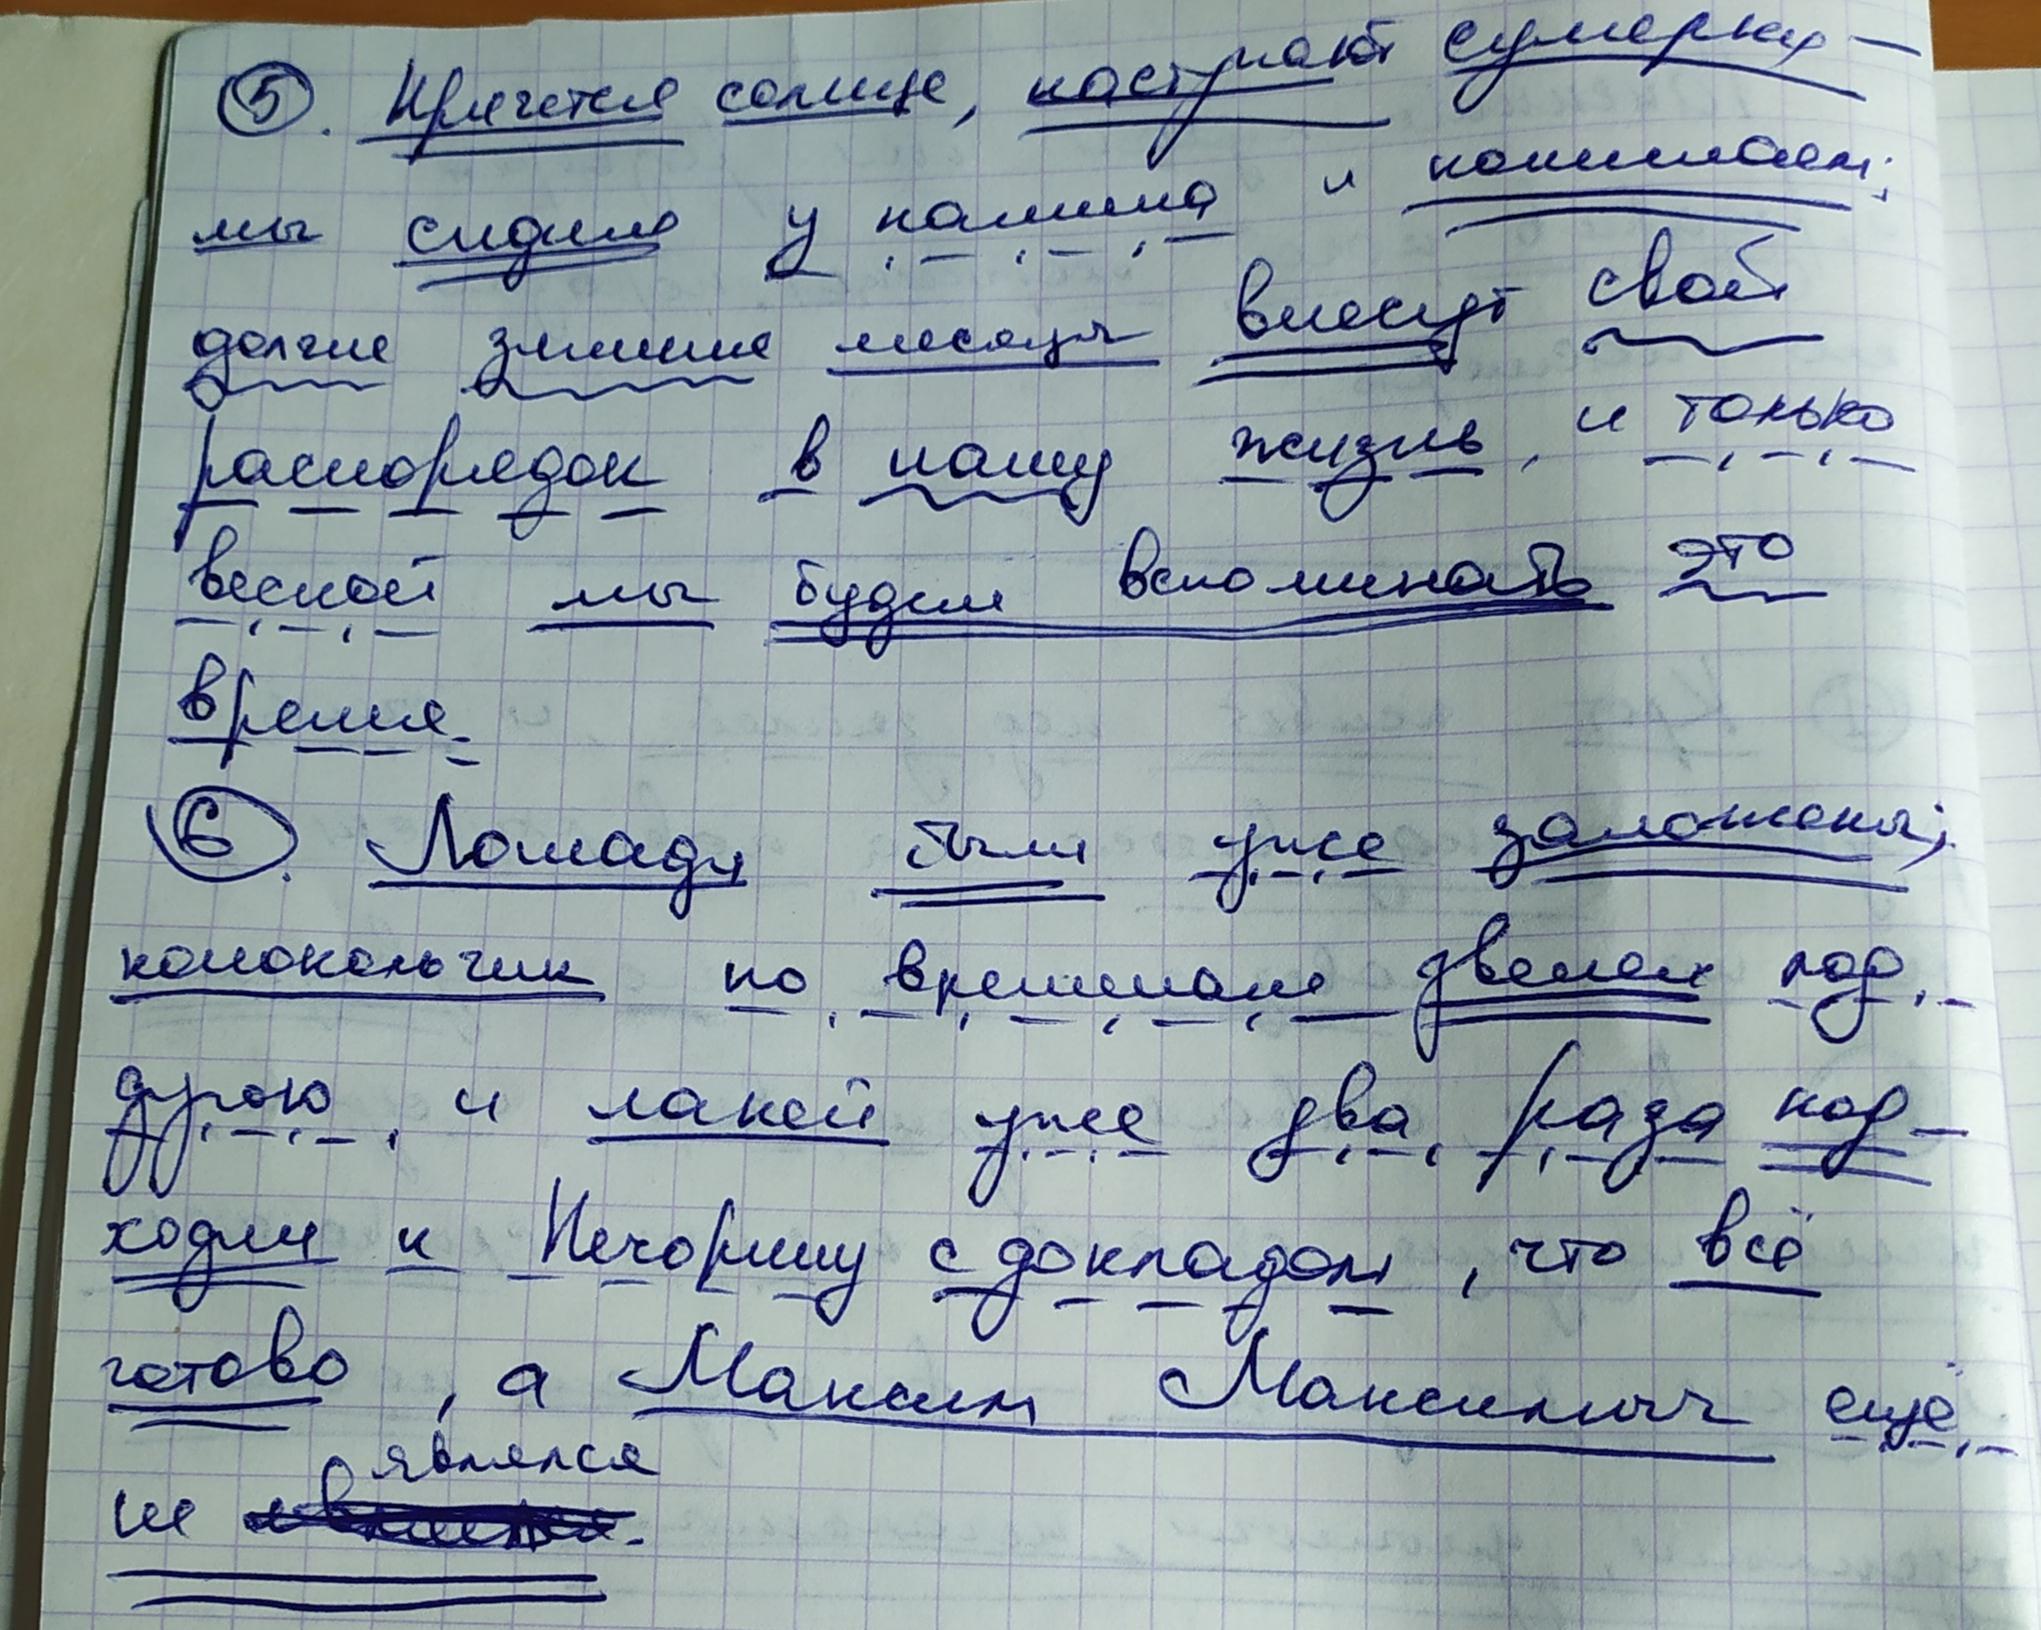 5. Прячется солнце, наступают сумерки, –
мы сидим у камина и понимаем;
долгие зимние месяцы внесут свой
распорядок в нашу жизнь, и только
весной мы будем вспоминать это
время.
6. Лошади были уже заложены;
колокольчик по временам звенел под
дугою, и лакей уже два раза под-
ходил к Печорину с докладом, что всё
готово, а Максим Максимыч ещё
не являлся